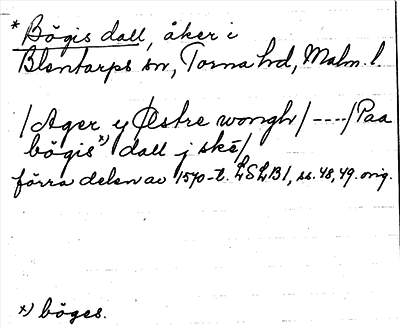 * Bögis dall, åker i
Blentarps sn, Torna hd, Malm. l.
/Ager y Østre wongh/ ----/Paa
bögis*) dall j skē/
förra delen av 1570-t. LSLB1, ss. 48, 49. orig.
*) böges.